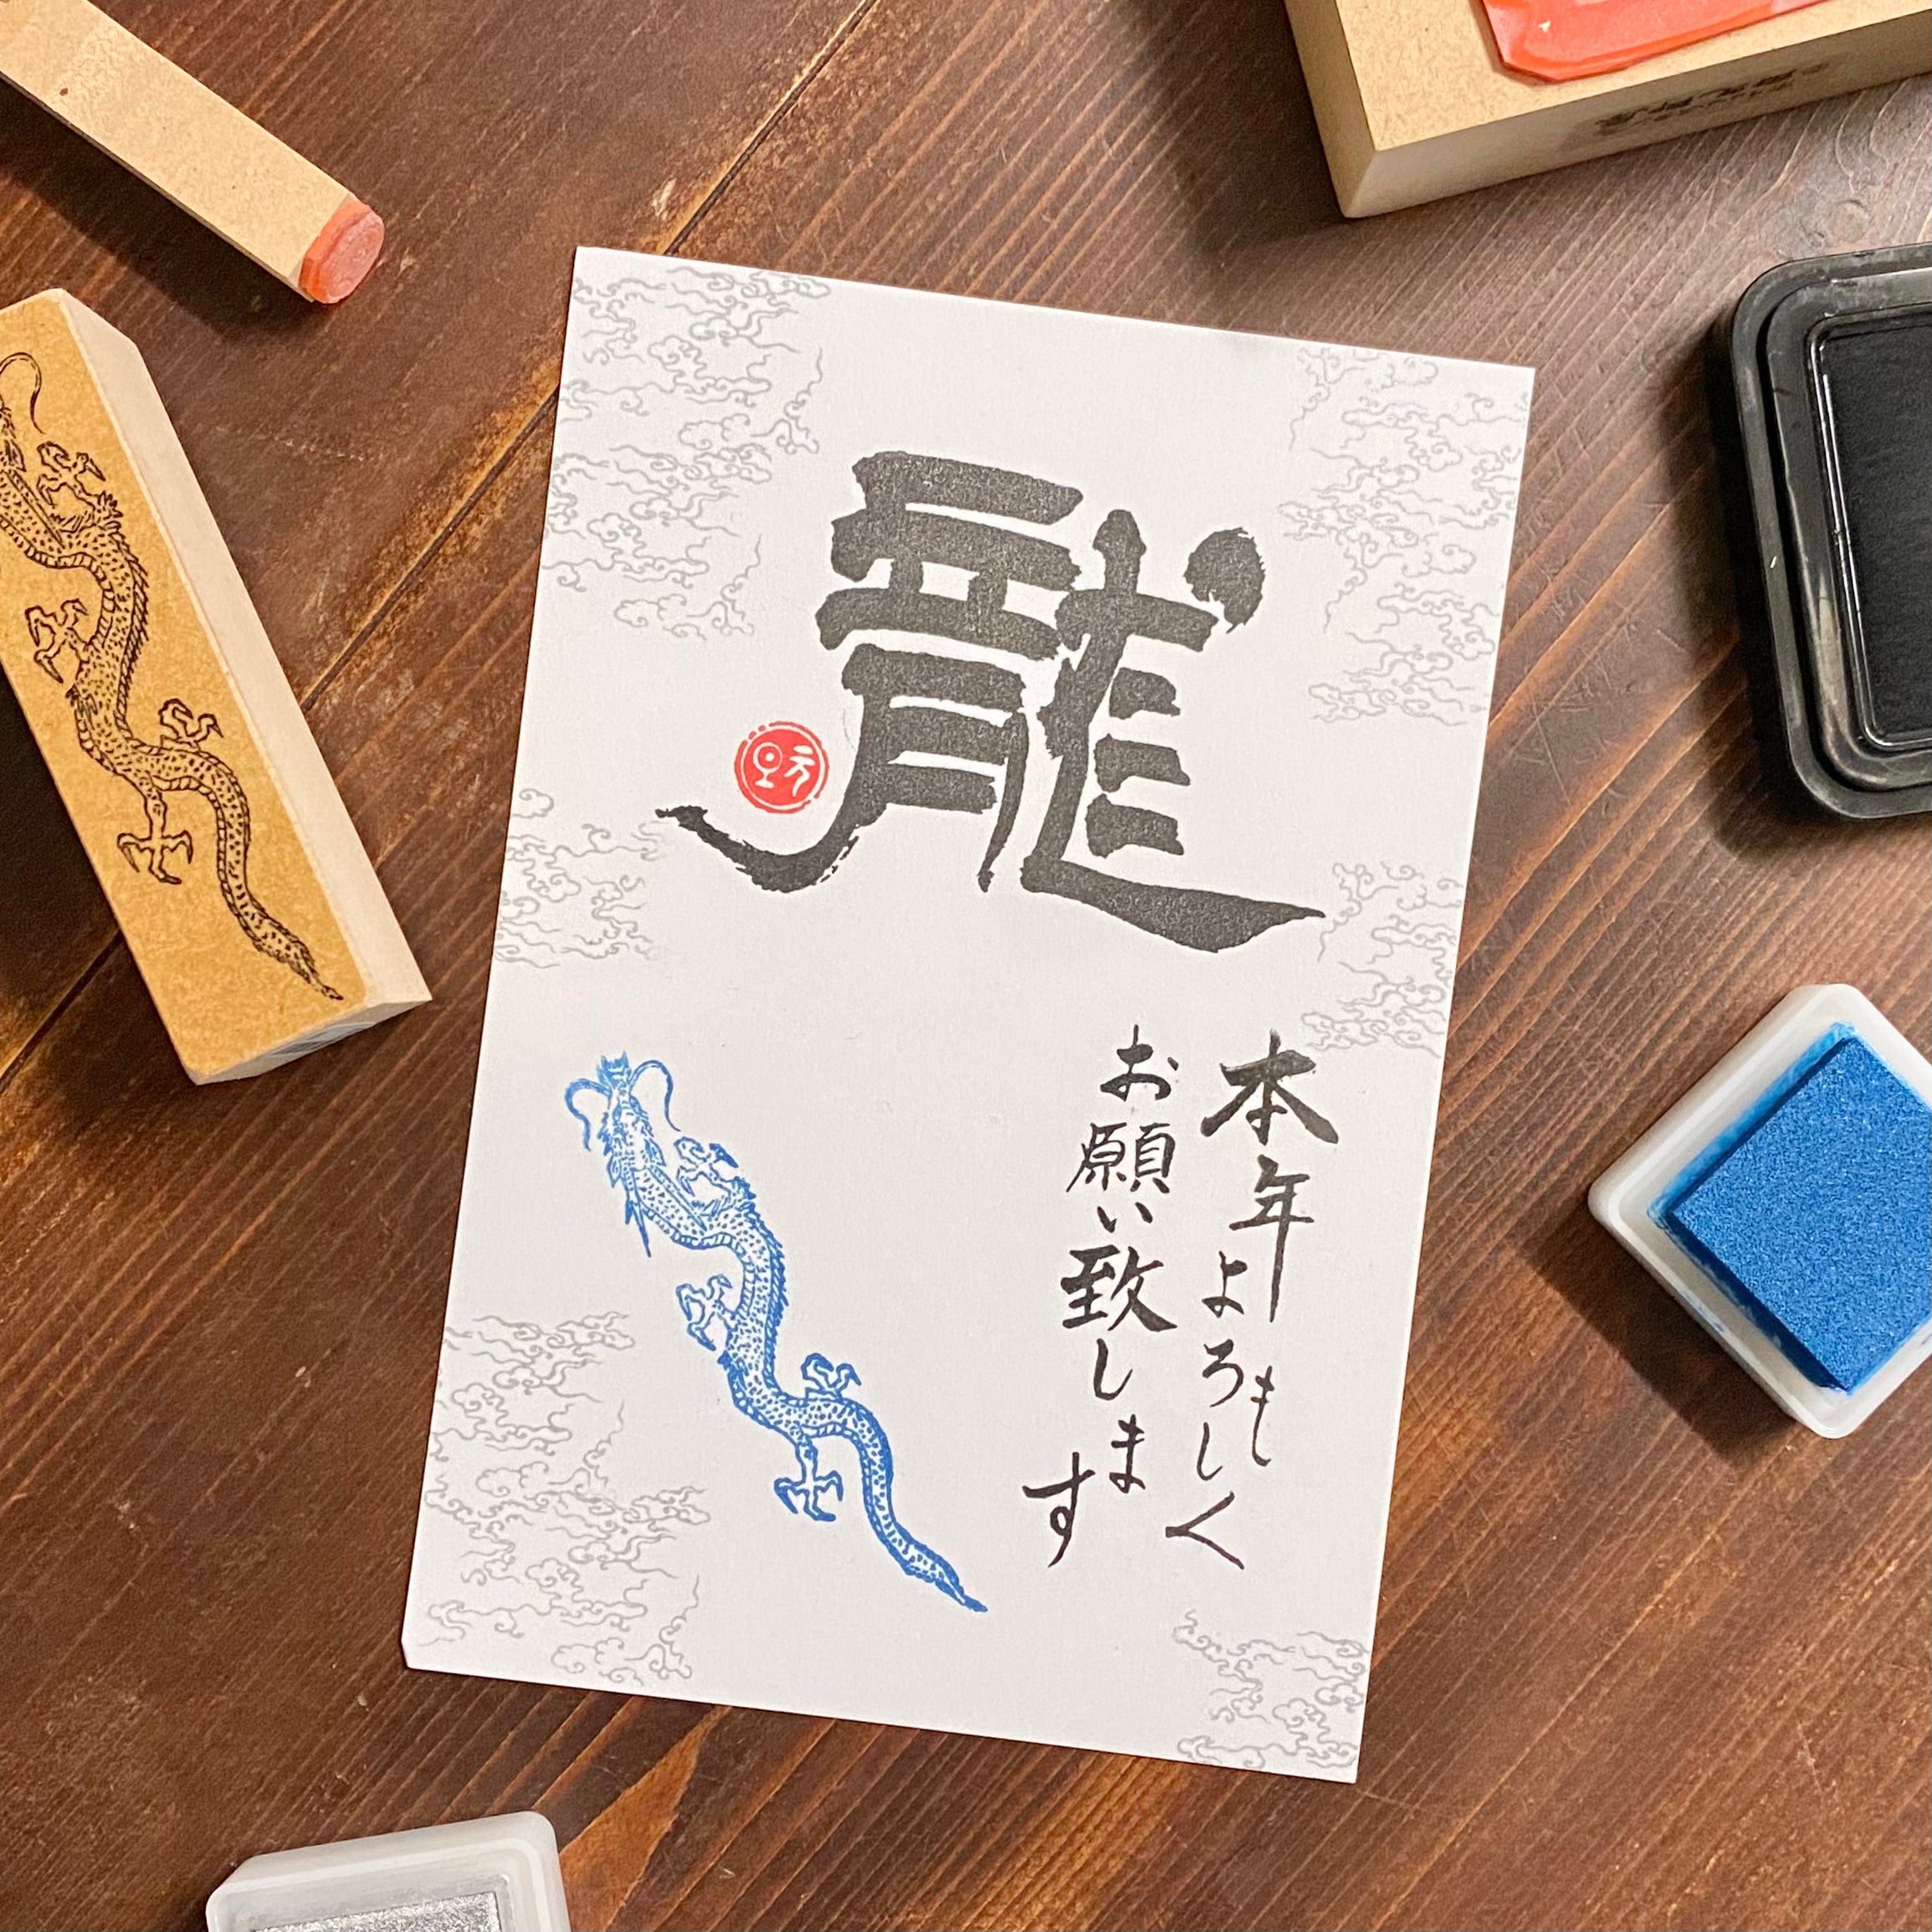 龍
本年もよろしく
お願い致します